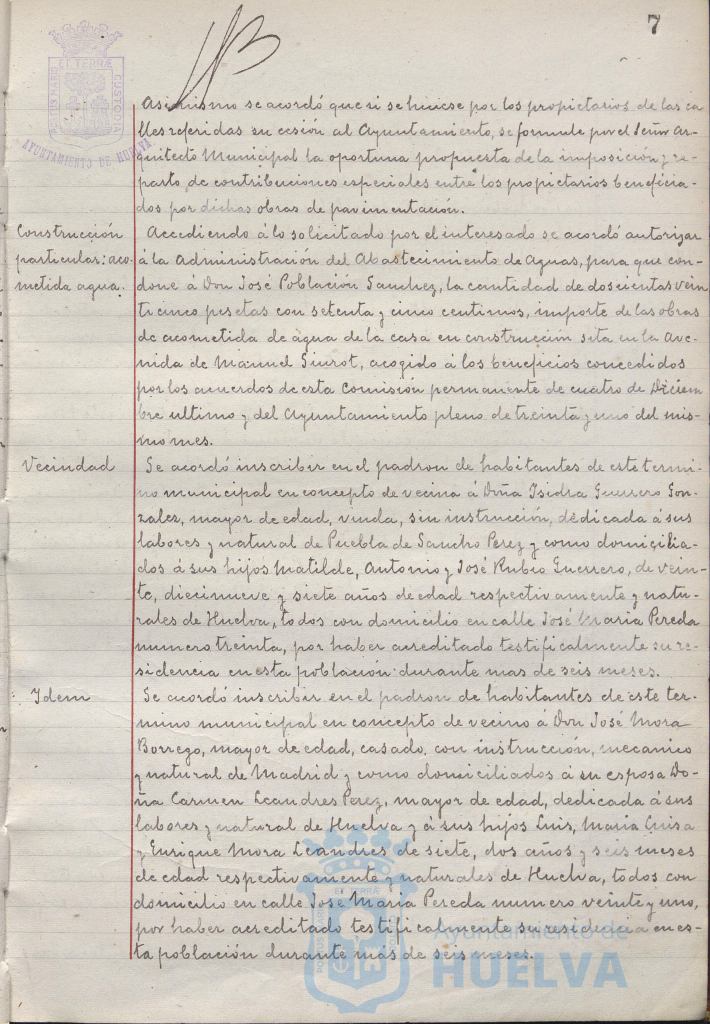 7
ET TERRÆ
PORTUS MARIS
CUSTODIA
AYUNTAMIENTO DE HUELVA
Asimismo se acordó que si se hiciese por los propietarios de las ca
lles referidas su cesión al Ayuntamiento, se formule por el Señor Ar-
quitecto Municipal la oportuna propuesta de la imposición y re-
parto de contribuciones especiales entre los propietarios beneficia-
dos por dichas obras de pavimentación.
Construcción
particular: aco-
metida agua.
Accediendo á lo solicitado por el interesado se acordó autorizar
á la Administración del Abastecimiento de Aguas, para que con-
done á Don José Población Sanchez, la cantidad de doscientas vein
ti cinco pesetas con setenta y cinco centimos, importe de las obras
de acometida de agua de la casa en construcción sita en la Ave-
nida de Manuel Siurot, acogido á los beneficios concedidos
por los acuerdos de esta Comisión permanente de cuatro de Diciem
bre ultimo y del Ayuntamiento pleno de treinta y uno del mis-
mo mes.
Vecindad
Se acordó inscribir en el padron de habitantes de este termi-
no municipal en concepto de vecina á Doña Isidra Guerrero Gon-
zalez, mayor de edad, viuda, sin instrucción, dedicada á sus
labores y natural de Puebla de Sancho Perez y como domicilia-
dos á sus hijos Matilde, Antonio y José Rubio Guerrero, de vein-
te, diecinueve y siete años de edad respectivamente y natu-
rales de Huelva, todos con domicilio en calle José Maria Pereda
numero treinta, por haber acreditado testificalmente su re-
sidencia en esta población durante mas de seis meses.
Idem
Se acordó inscribir en el padron de habitantes de este ter-
mino municipal en concepto de vecino á Don José Mora
Borrego, mayor de edad, casado, con instrucción, mecanico
y natural de Madrid y como domiciliados á su esposa Do-
ña Carmen Leandres Perez, mayor de edad, dedicada á sus
labores y natural de Huelva y á sus hijos Luis, Maria Luisa
y Enrique Mora Leandres de siete, dos años y seis meses
de edad respectivamente y naturales de Huelva, todos con
domicilio en calle José Maria Pereda numero veinte y uno,
por haber acreditado testificalmente su residencia en es-
ta población durante más de seis meses.
Ayuntamiento de
HUELVA